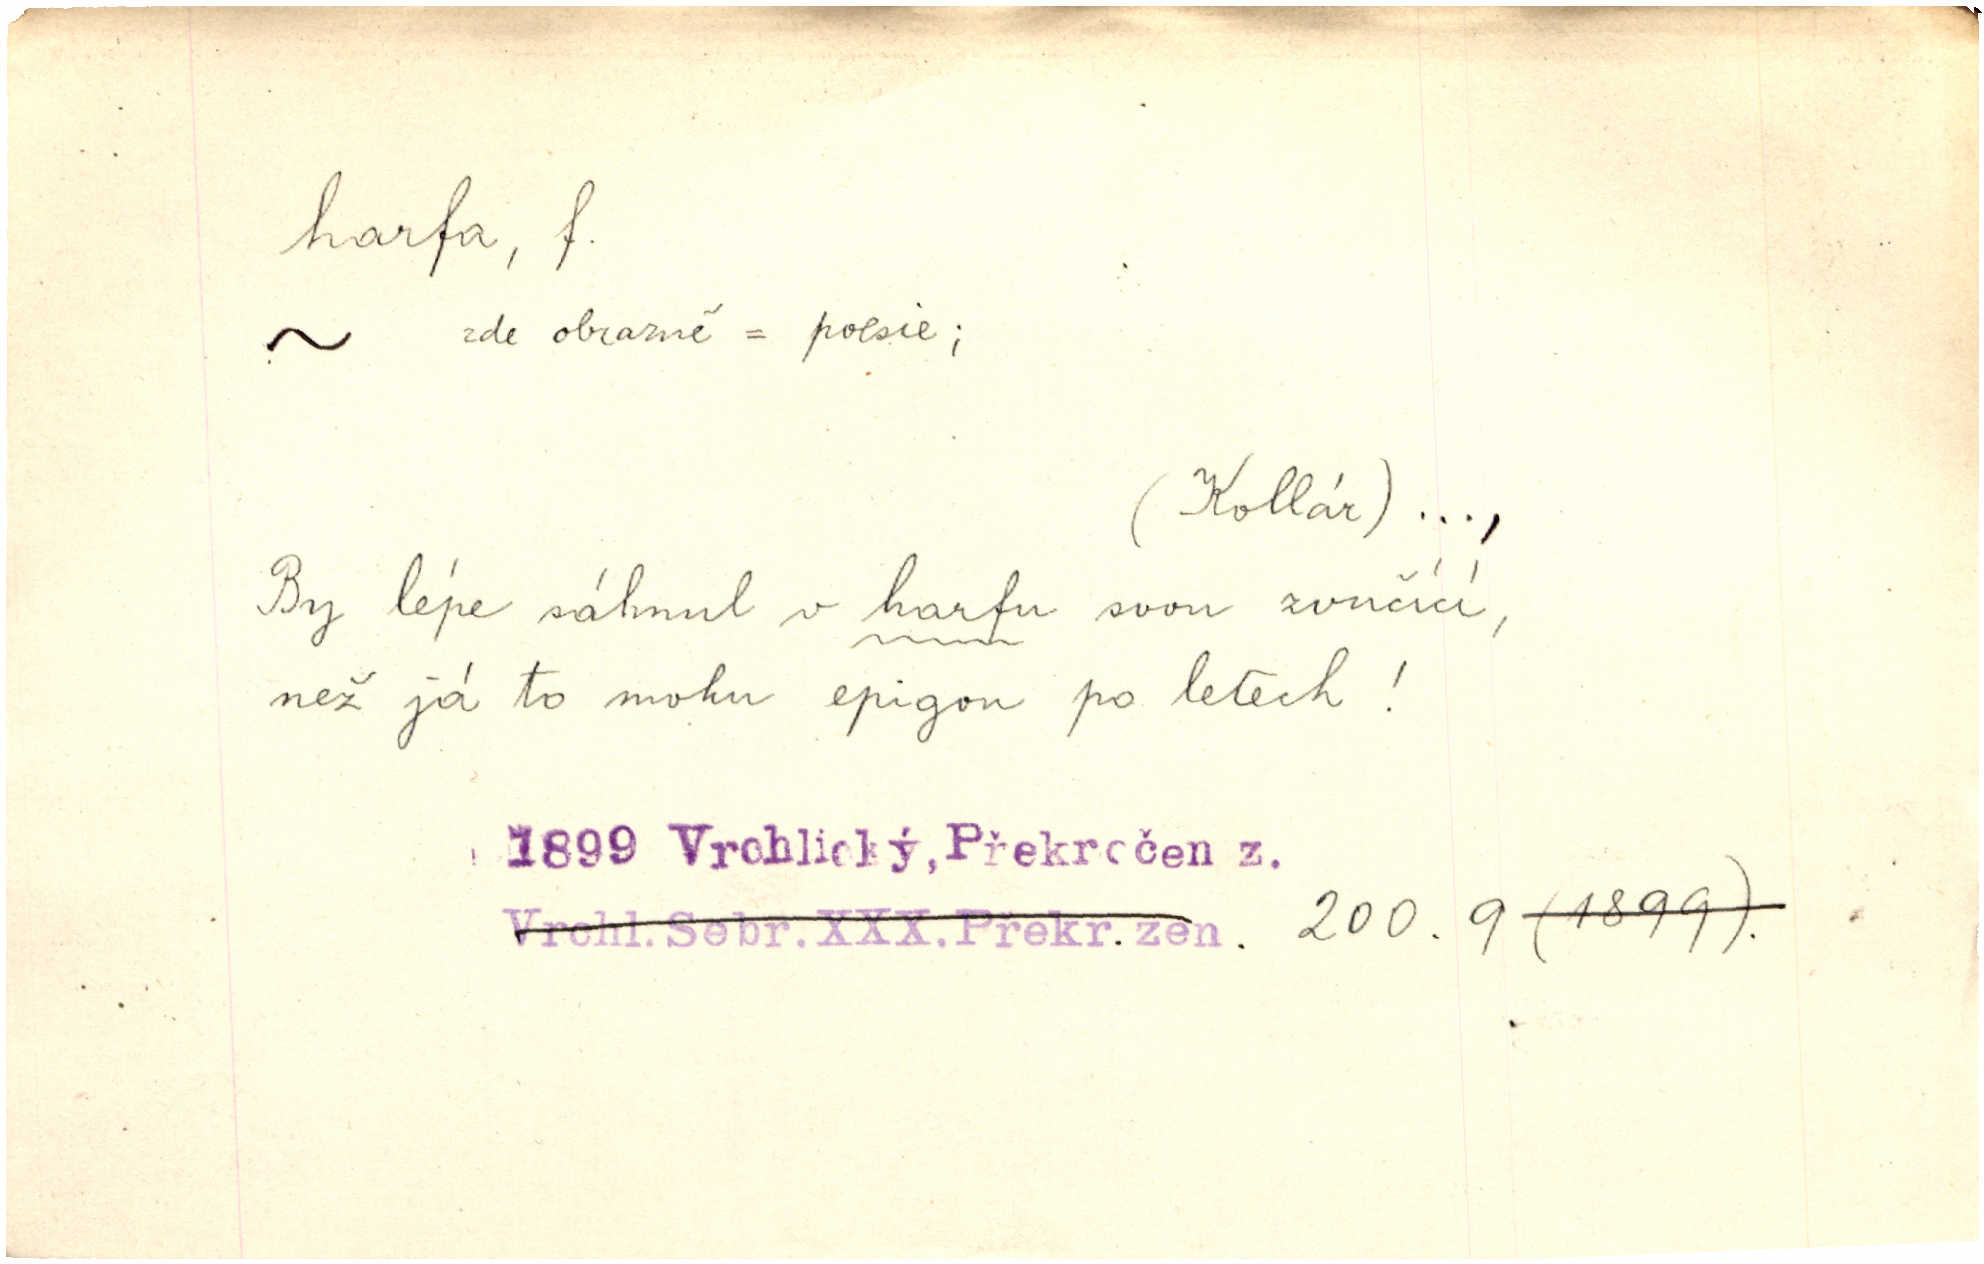 harfa, f.
~ zde obrazně = poesie;
(Kollár) ...,
By lépe sáhnul v harfu svou zvučící,
než já to mohu epigon po letech!
1899 Vrchlický, Překročen z.
Vrchl. Sebr. XXX. Překr. zen. 200. 9 (1899).